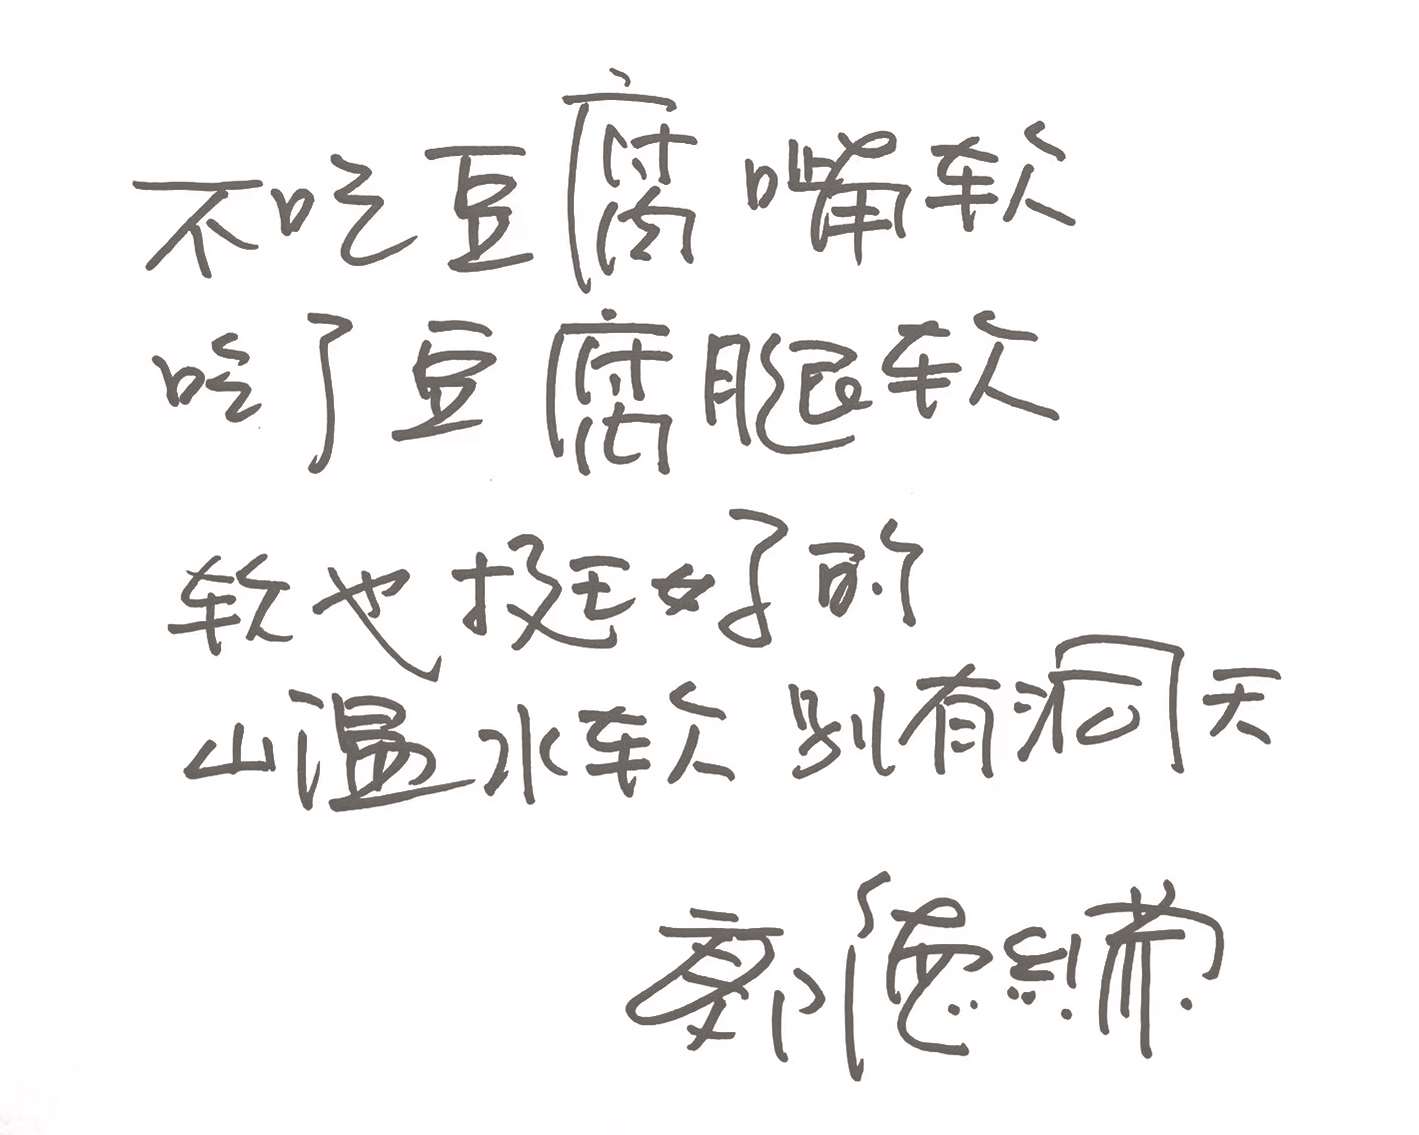 不吃豆腐嘴软
吃了豆腐腿软
软也挺好的
山温水软别有洞天
郭德纲